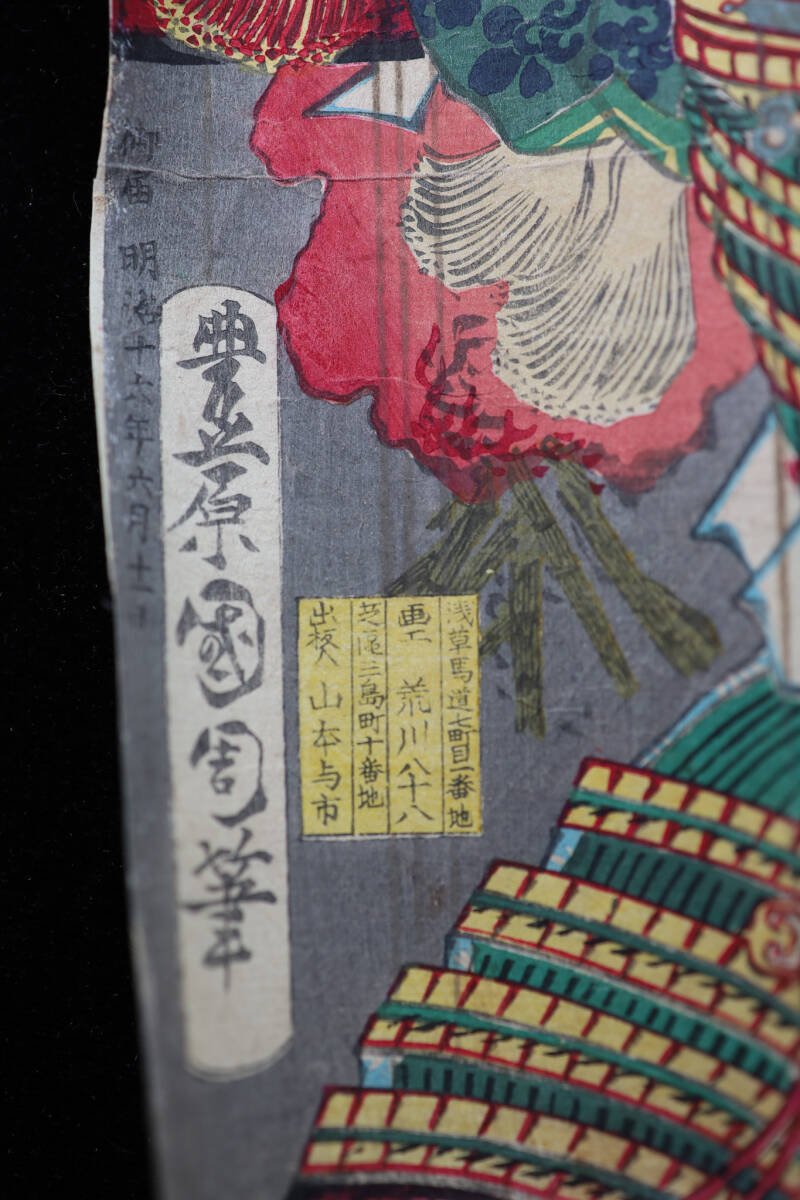 浅草馬道七町目一番地
画工 荒川八十八
芝區三島町十番地
出板人 山本与市
豊原國周筆
御届 明治十六年六月十二日